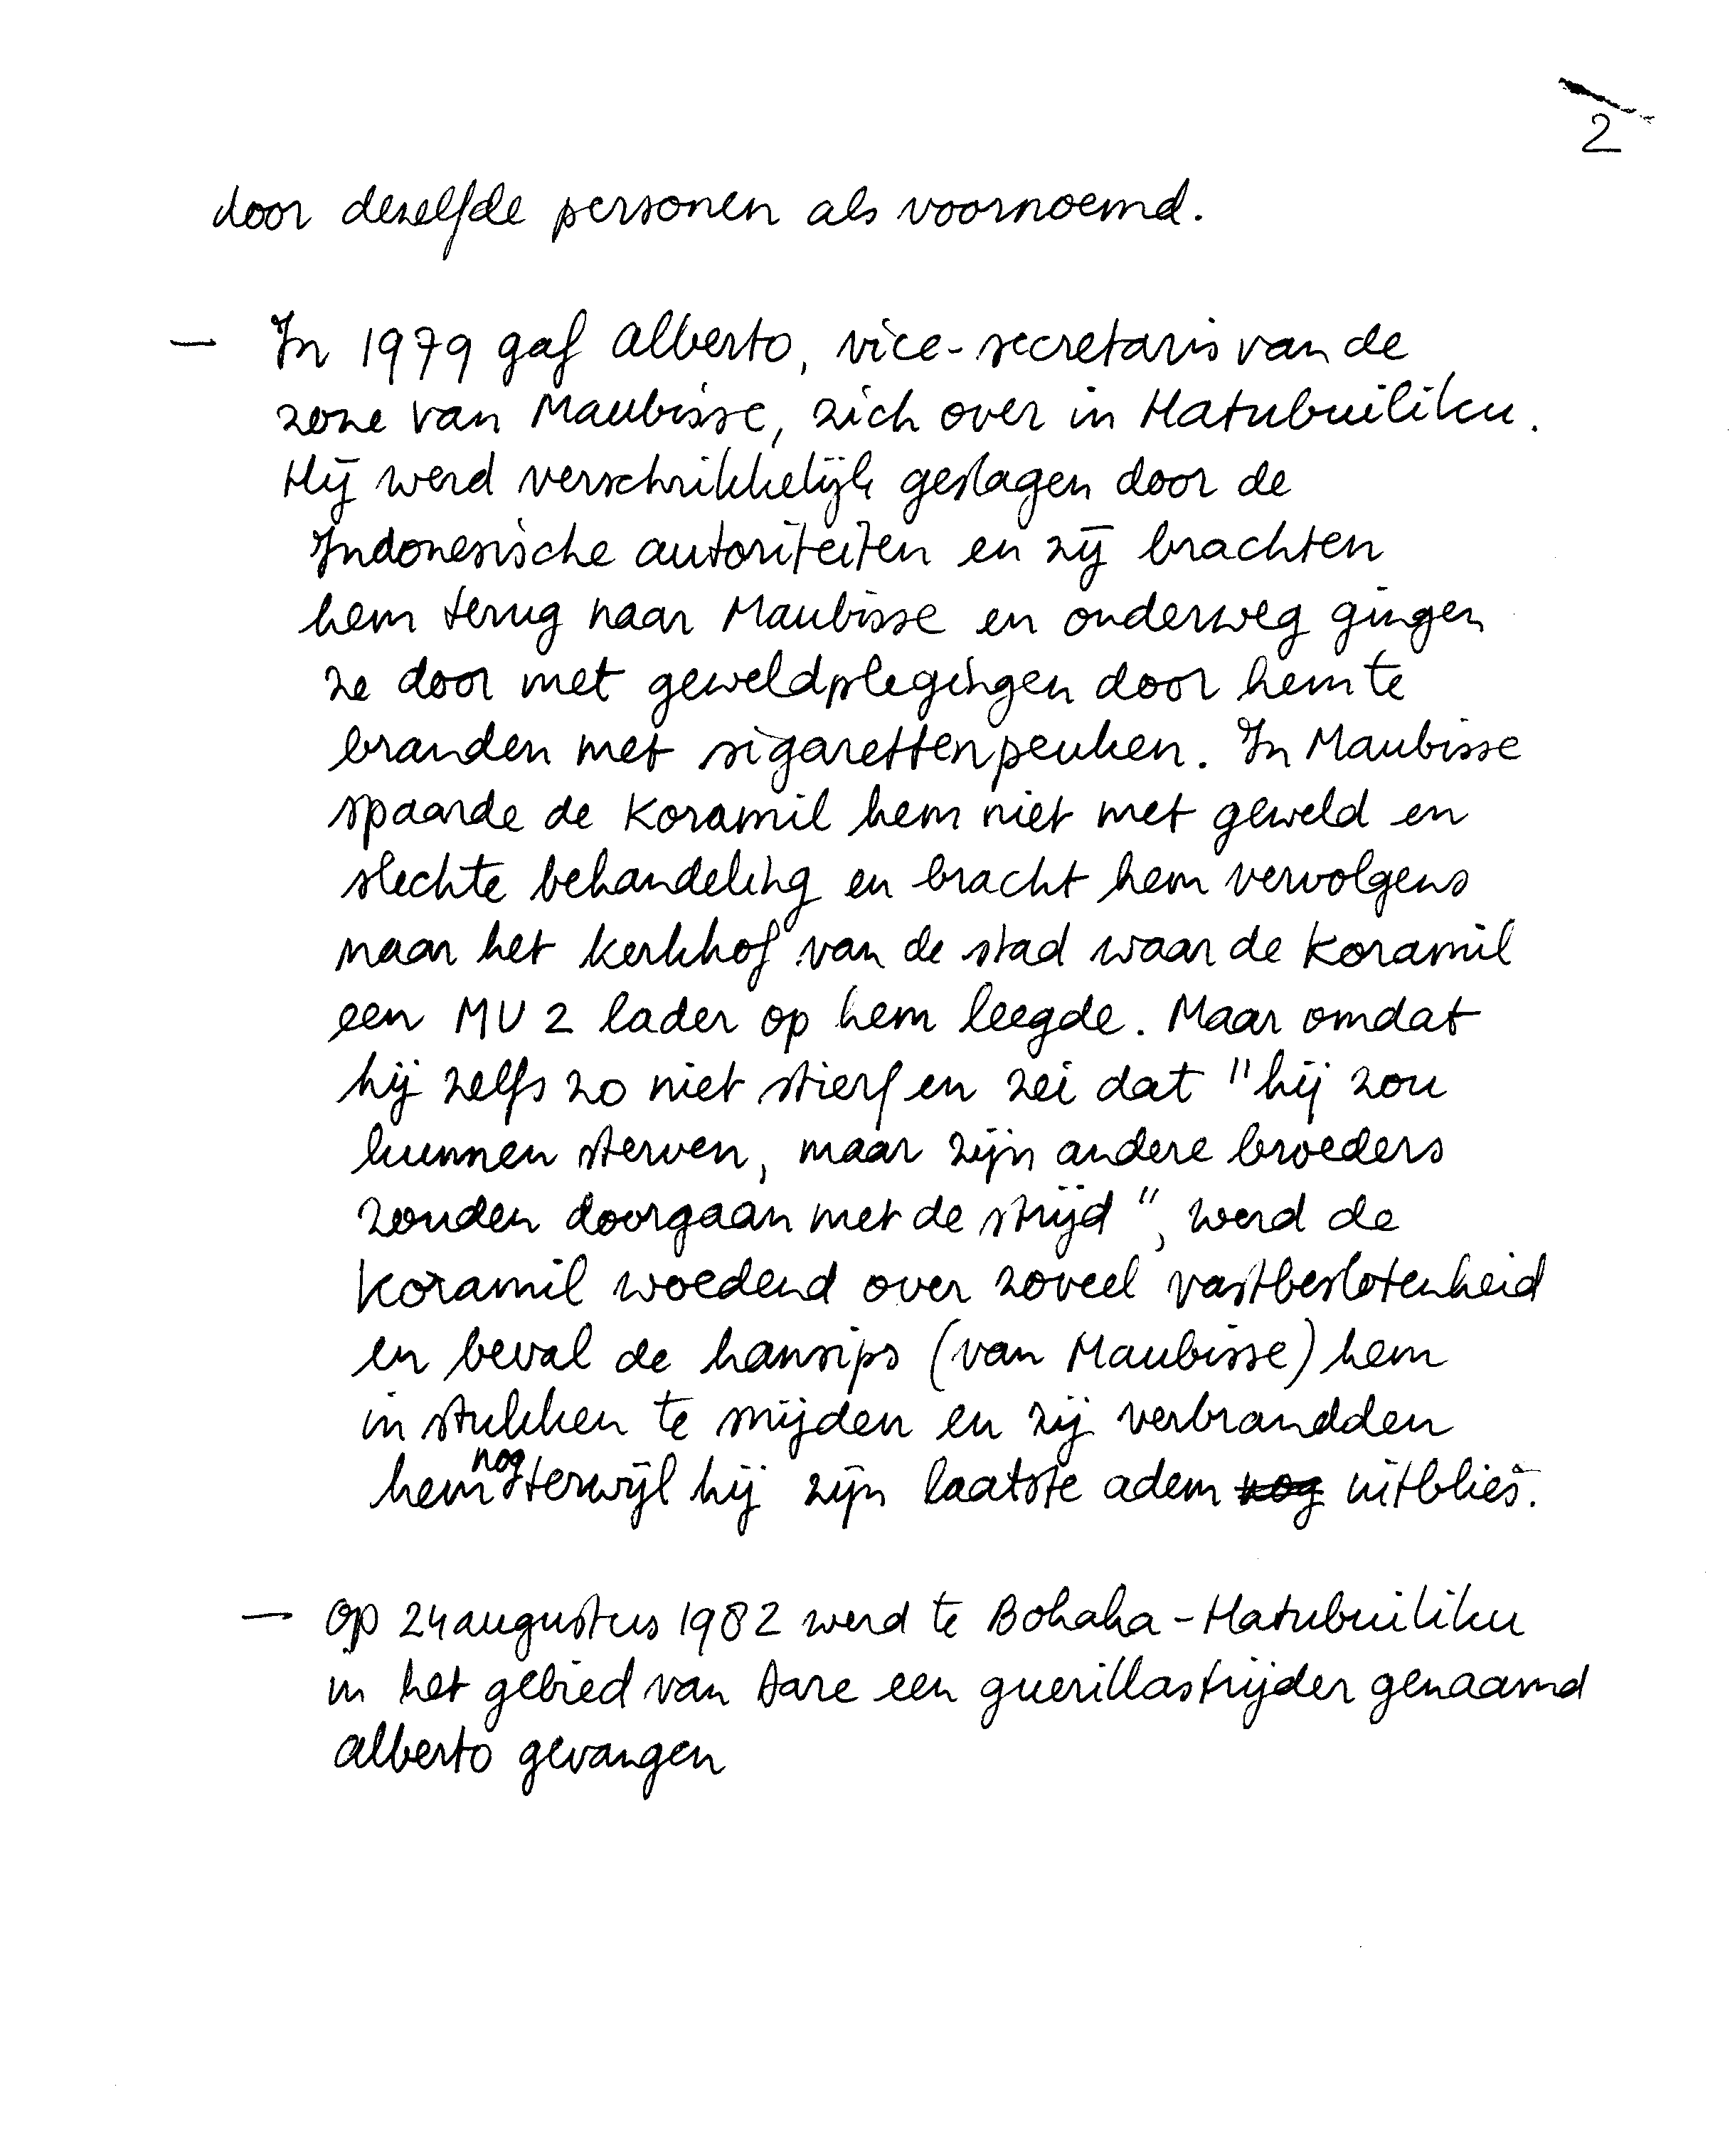 2
door dezelfde personen als voornoemd.
— In 1979 gaf Alberto, vice-secretaris van de
zone van Maubisse, zich over in Hatubuiliku.
Hij werd verschrikkelijk geslagen door de
Indonesische autoriteiten en zij brachten
hem terug naar Maubisse en onderweg gingen
ze door met geweldplegingen door hem te
branden met sigarettenpeuken. In Maubisse
spaarde de Koramil hem niet met geweld en
slechte behandeling en bracht hem vervolgens
naar het kerkhof van de stad waar de Koramil
een MU 2 lader op hem leegde. Maar omdat
hij zelfs zo niet stierf en zei dat "hij zou
kunnen sterven, maar zijn andere broeders
zouden doorgaan met de strijd", werd de
Koramil woedend over zoveel vastbeslotenheid
en beval de hansips (van Maubisse) hem
in stukken te snijden en zij verbrandden
hem nog terwijl hij zijn laatste adem nog uitblies.
— Op 24 augustus 1982 werd te Bohaha - Hatubuiliku
in het gebied van Aare een guerillastrijder genaamd
Alberto gevangen